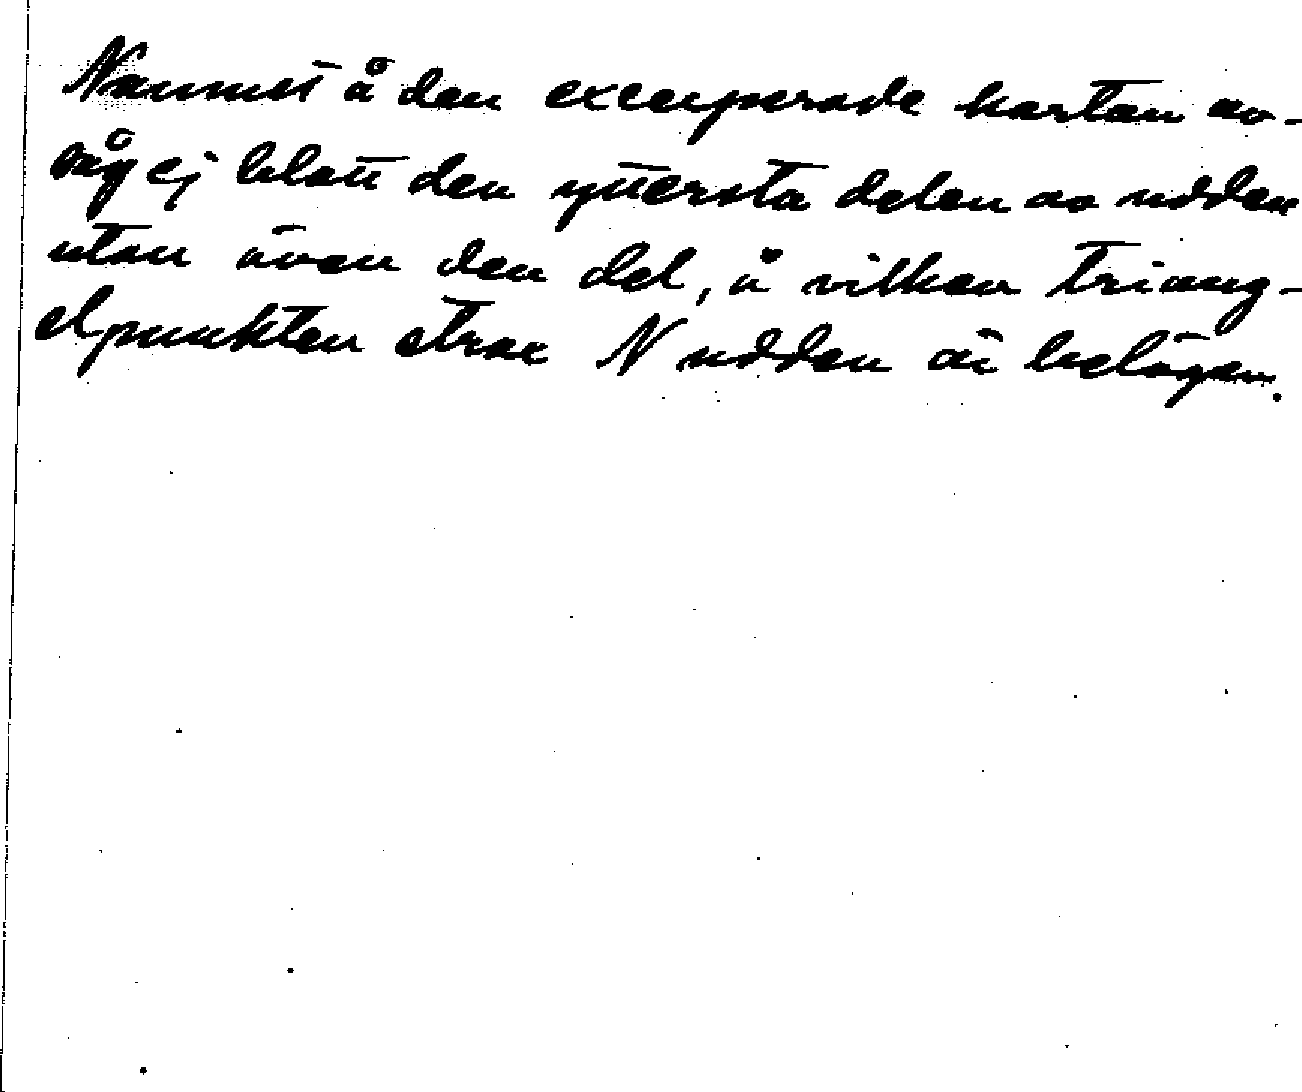 Namnet å den excerperade kartan av-
såg ej blott den yttersta delen av udden
utan även den del, å vilken triang-
elpunkten strax N udden är belägen.